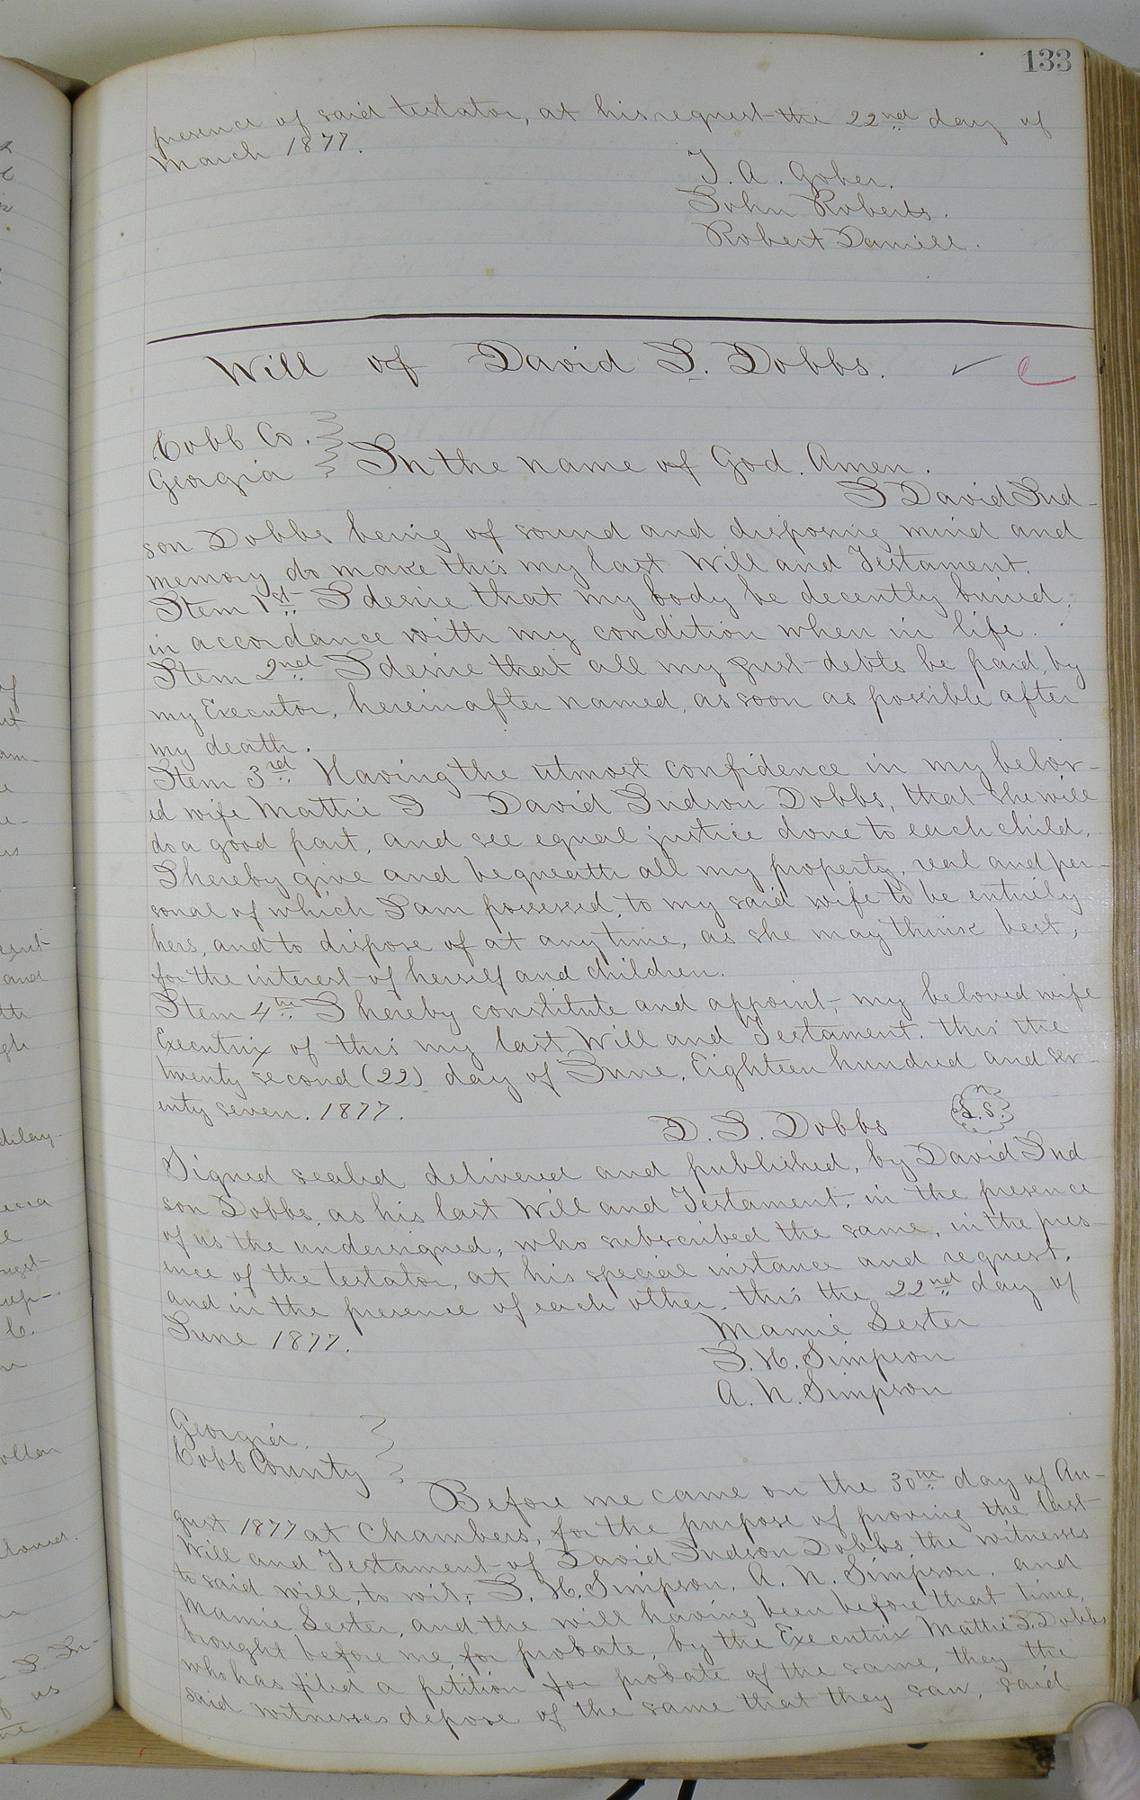 133
presence of said testator, at his request the 22nd day of
March 1877.
T. A. Gober.
John Roberts.
Robert Daniell.
Will of David J. Dobbs.
Cobb Co.
Georgia
In the name of God. Amen.
I David Jud-
son Dobbs being of sound and disposing mind and
memory do make this my last Will and Testament.
Item 1st I desire that my body be decently buried,
in accordance with my condition when in life.
Item 2nd I desire that all my just debts be paid, by
my Executor, hereinafter named, as soon as possible after
my death.
Item 3rd Having the utmost confidence in my belov-
ed wife Mattie J David Judson Dobbs, that she will
do a good part, and see equal justice done to each child,
I hereby give and bequeath all my property, real and per-
sonal of which I am possessed, to my said wife to be entirely
hers, and to dispose of at any time, as she may think best,
for the interest of herself and children.
Item 4th I hereby constitute and appoint, my beloved wife
Executrix of this my last Will and Testament. this the
twenty second (22) day of June, Eighteen hundred and sev-
enty seven. 1877.
D. J. Dobbs L.S.
Signed sealed delivered and published, by David Jud
son Dobbs, as his last Will and Testament, in the presence
of us the undersigned, who subscribed the same, in the pres-
ence of the testator, at his special instance and request,
and in the presence of each other. this the 22nd day of
June 1877.
Mamie Lester
J. H. Simpson
A. N. Simpson
Georgia.
Cobb County
Before me came on the 30th day of Au-
gust 1877 at Chambers, for the purpose of proving the last
Will and Testament of David Judson Dobbs, the witnesses
to said will, to wit, J. H. Simpson, A. N. Simpson, and
Mamie Lester, and the will having been before that time,
brought before me, for probate, by the Executrix Mattie J. Dobbs
who has filed a petition for probate of the same, they the
said witnesses depose of the same that they saw, said